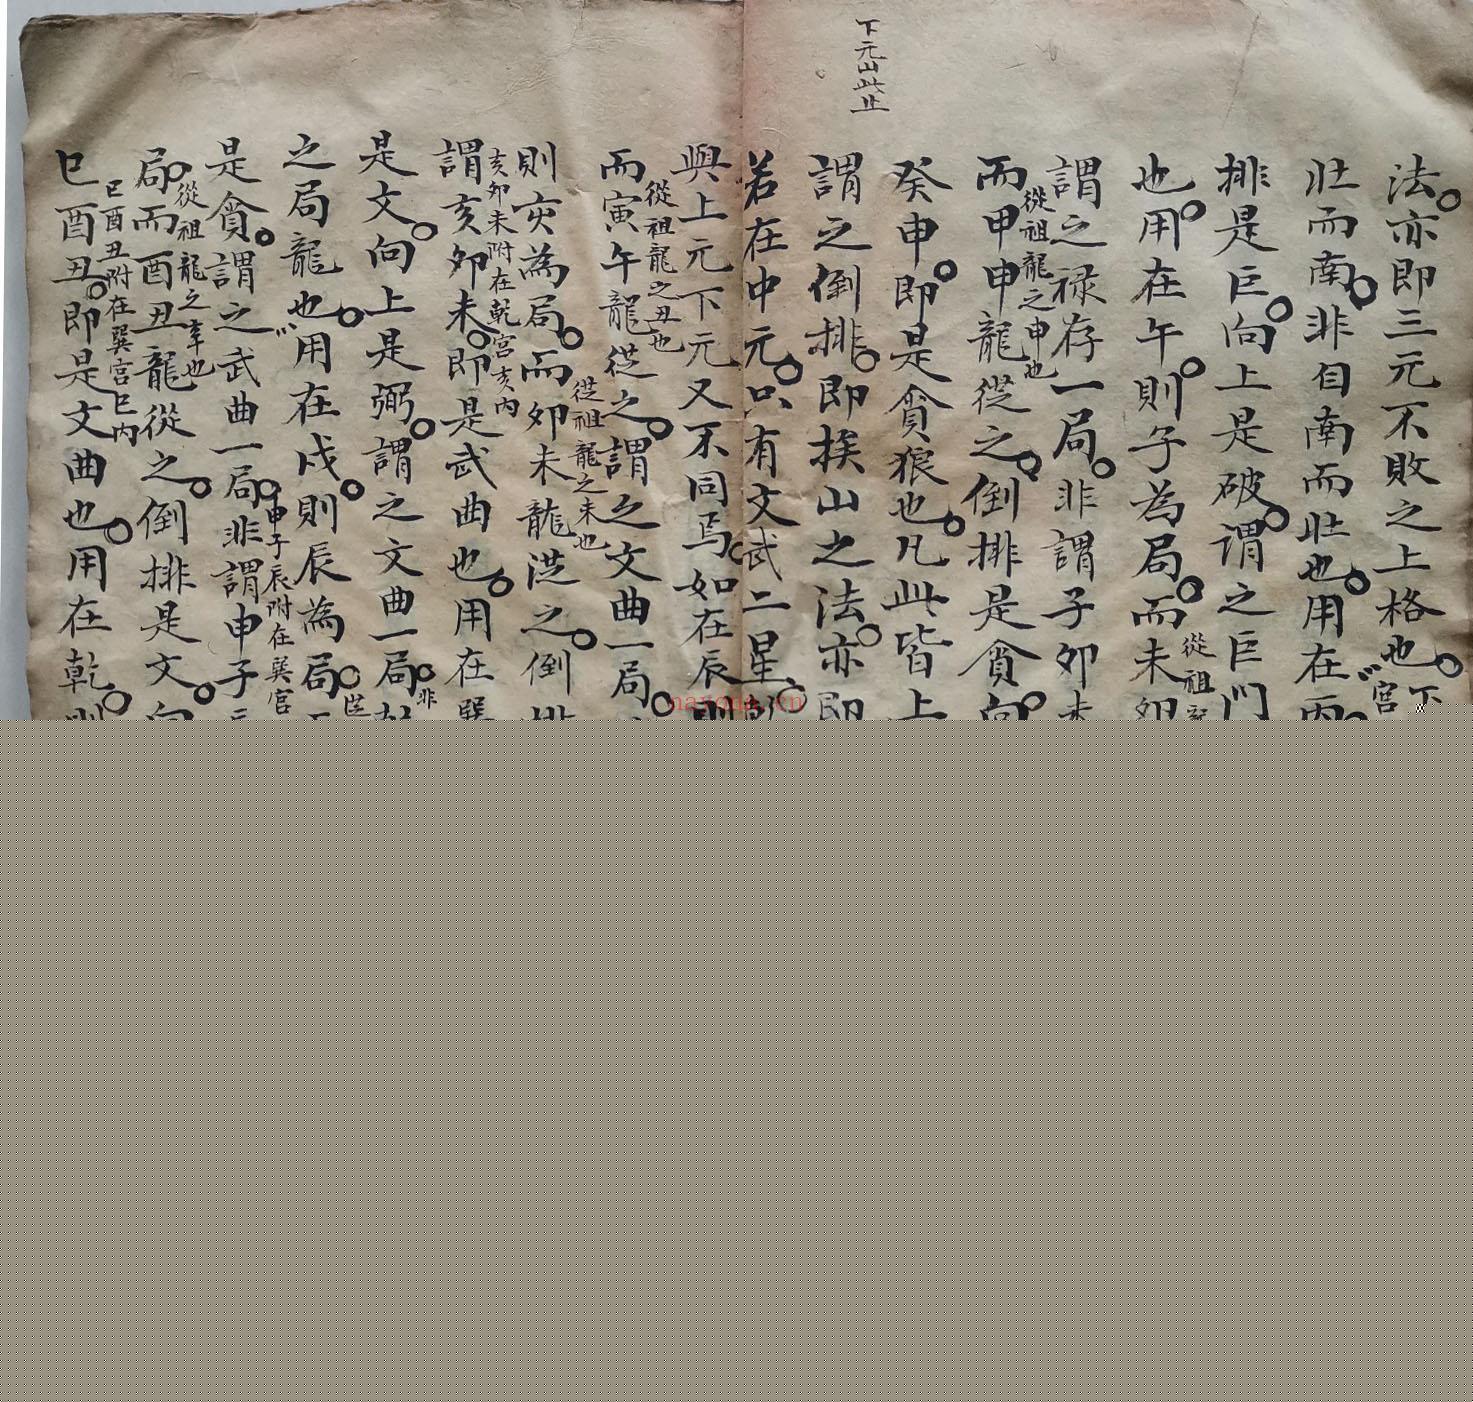 法亦即三元不敗之上格也下
宮
壯而南非自南而壯也用在丙
排是巨向上是破谓之巨门
也用在午則子為局而未卯
從祖龍
謂之禄存一局非謂子卯未
從祖龍之申也
而甲申龍從之倒排是貪向
癸申即是貪狼也凡此皆上
下元山此止
謂之倒排即挨山之法亦即
若在中元只有文武二星
與上元下元又不同焉如在辰則
從祖龍之丑也
而寅午龍從之謂之文曲一局
從祖龍之未也
則亥為局而卯未龍從之倒排
亥卯未附在乾宮亥內
謂亥卯未即是武曲也用在巽
是文向上是弼謂之文曲一局
非
之局龍也用在戌則辰為局
從
申子辰附在巽宮
是貪謂之武曲一局非謂申子辰
從祖龍之辛也
局而酉丑龍從之倒排是文向
巳酉丑附在巽宮巳內
巳酉丑即是文曲也用在乾則
nayona.cn